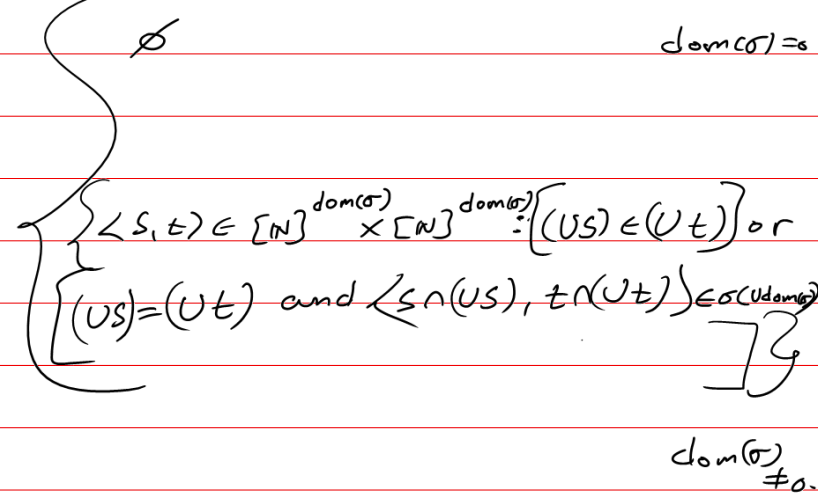 ∅ dom(σ)=0
{<s,t> ∈ [ℕ]^{dom(σ)} × [ℕ]^{dom(σ)} : [(∪s) ∈ (∪t)] or
[(∪s)=(∪t) and <s∩(∪s), t∩(∪t)> ∈ σ(∪dom(σ))
]}
dom(σ)
≠0.